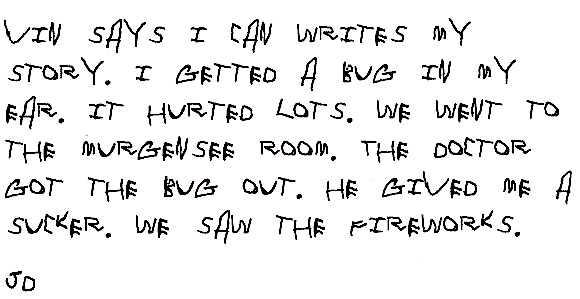 VIN SAYS I CAN WRITES MY
STORY. I GETTED A BUG IN MY
EAR. IT HURTED LOTS. WE WENT TO
THE MURGENSEE ROOM. THE DOCTOR
GOT THE BUG OUT. HE GIVED ME A
SUCKER. WE SAW THE FIREWORKS.
JD